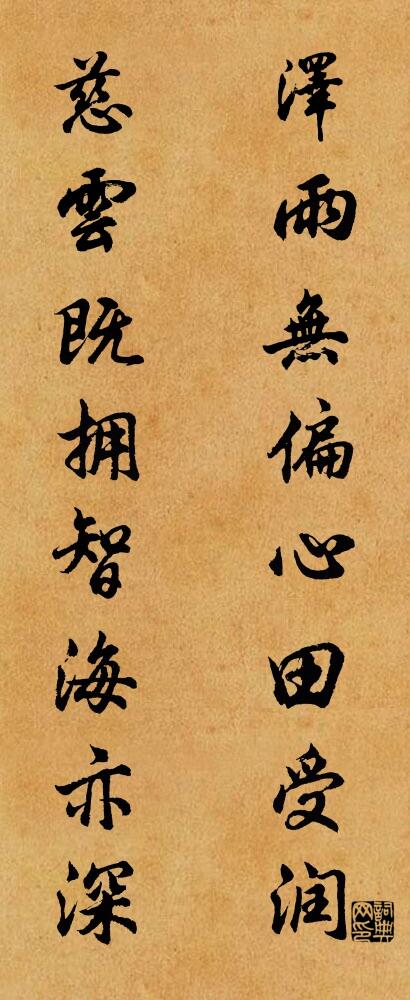 澤雨無偏心田受润
慈雲既拥智海亦深
詞典网印